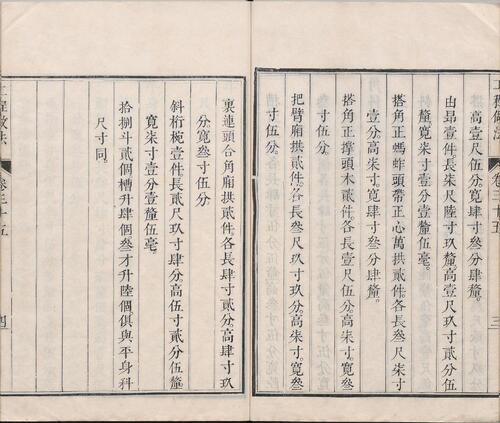 工程做法 卷三十五 三
高壹尺伍分。寬肆寸叁分肆釐。
由昂壹件長柒尺陸寸玖釐高壹尺玖寸貳分伍
釐寬柒寸壹分壹釐伍毫。
搭角正螞蚱頭帶正心萬拱貳件。各長叁尺柒寸
壹分。高柒寸。寬肆寸叁分肆釐。
搭角正撑頭木貳件。各長壹尺伍分。高柒寸。寬叁
寸伍分。
把臂廂拱貳件。各長叁尺玖寸玖分。高柒寸。寬叁
寸伍分。
裏連頭合角廂拱貳件各長肆寸貳分。高肆寸玖
分寬叁寸伍分
斜桁椀壹件長貳尺玖寸肆分。高伍寸貳分伍釐
寬柒寸壹分壹釐伍毫。
拾捌斗貳個槽升肆個叁才升陸個俱與平身科
尺寸同。
工程做法 卷三十五 四